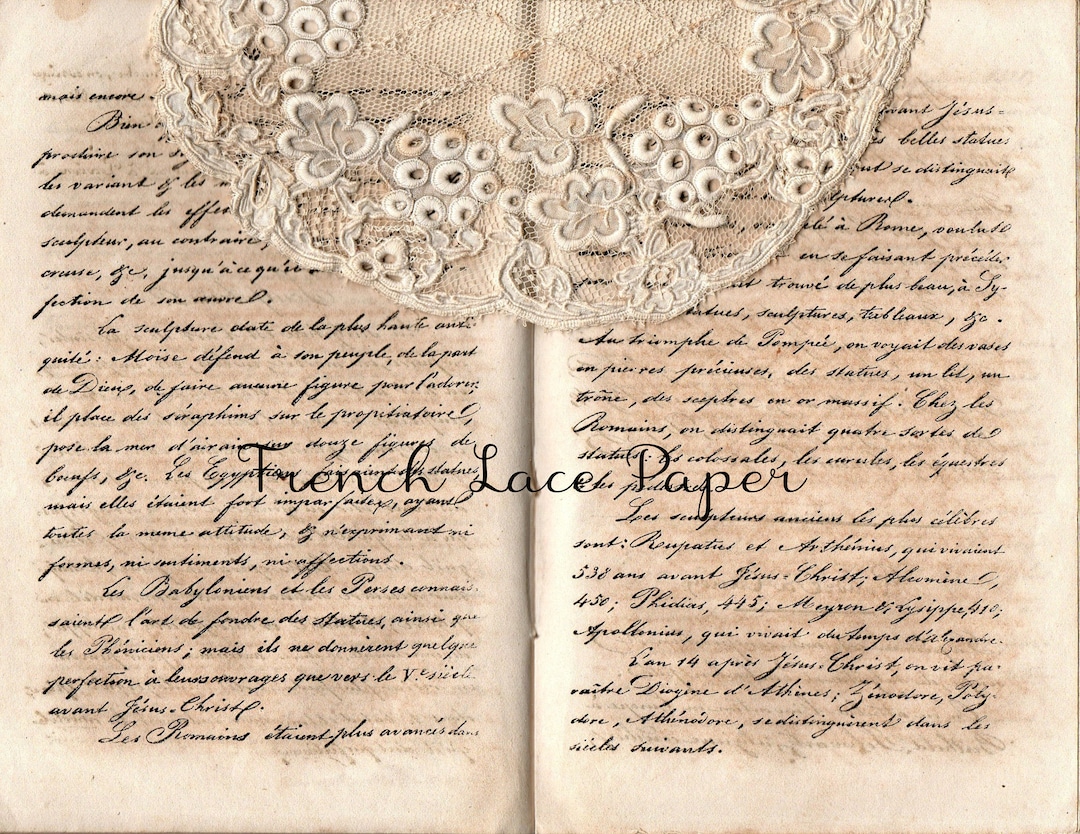 mais encore
Bien
produire son
les variant & les
demandent les effet
sculpteur, au contraire,
creuse, &c, jusqu'à ce qu'il
fection de son œuvre.
La sculpture date de la plus haute anti-
quité: Moïse défend à son peuple, de la part
de Dieu, de faire aucune figure pour l'adorer,
il place des séraphims sur le propitiatoire,
pose la mer d'airain sur douze figures de
bœufs, &c. Les Egyptiens avaient des statues
mais elles étaient fort imparfaites, ayant
toutes la meme attitude, & n'exprimant ni
formes, ni sentiments, ni affections.
Les Babyloniens et les Perses connais-
saient l'art de fondre des statues, ainsi que
les Phéniciens; mais ils ne donnèrent quelque
perfection à leurs ouvrages que vers le Ve siècle
avant Jésus-Christ.
Les Romains étaient plus avancés dans
avant Jésus=
belles statues
se distinguait
sculptures.
à Rome, voulut
en se faisant précéder
trouvé de plus beau, à Sy-
statues, sculptures, tableaux, &c.
Au triomphe de Pompée, on voyait des vases
en pierres précieuses, des statues, un lit, un
trône, des sceptres en or massif. Chez les
Romains, on distinguait quatre sortes de
statues: les colossales, les curules, les équestres
French Lace Paper
Les sculpteurs anciens les plus célèbres
sont: Rupatus et Arthénius, qui vivaient
538 ans avant Jésus-Christ; Alcomène,
450; Phidias, 445; Meyron & Lysippe, 410;
Apollonius, qui vivait du temps d'Alexandre.
L'an 14 après Jésus-Christ, on vit pa-
raître Diogène d'Athènes; Zénodore, Poly-
dore, Athénodore, se distinguèrent dans les
siècles suivants.